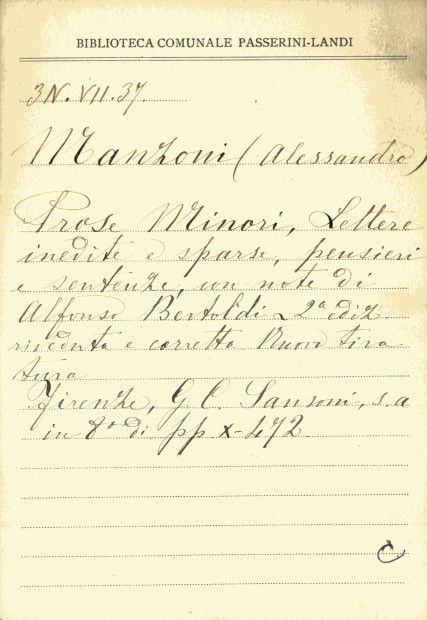 BIBLIOTECA COMUNALE PASSERINI-LANDI
3N.VII.37.
Manzoni (Alessandro)
Prose Minori, Lettere
inedite e sparse, pensieri
e sentenze, con note di
Alfonso Bertoldi 2ª ediz.
riveduta e corretta Nuova tira
tura
Firenze, G. C. Sansoni, s. a
in 8º di pp X-472.
C